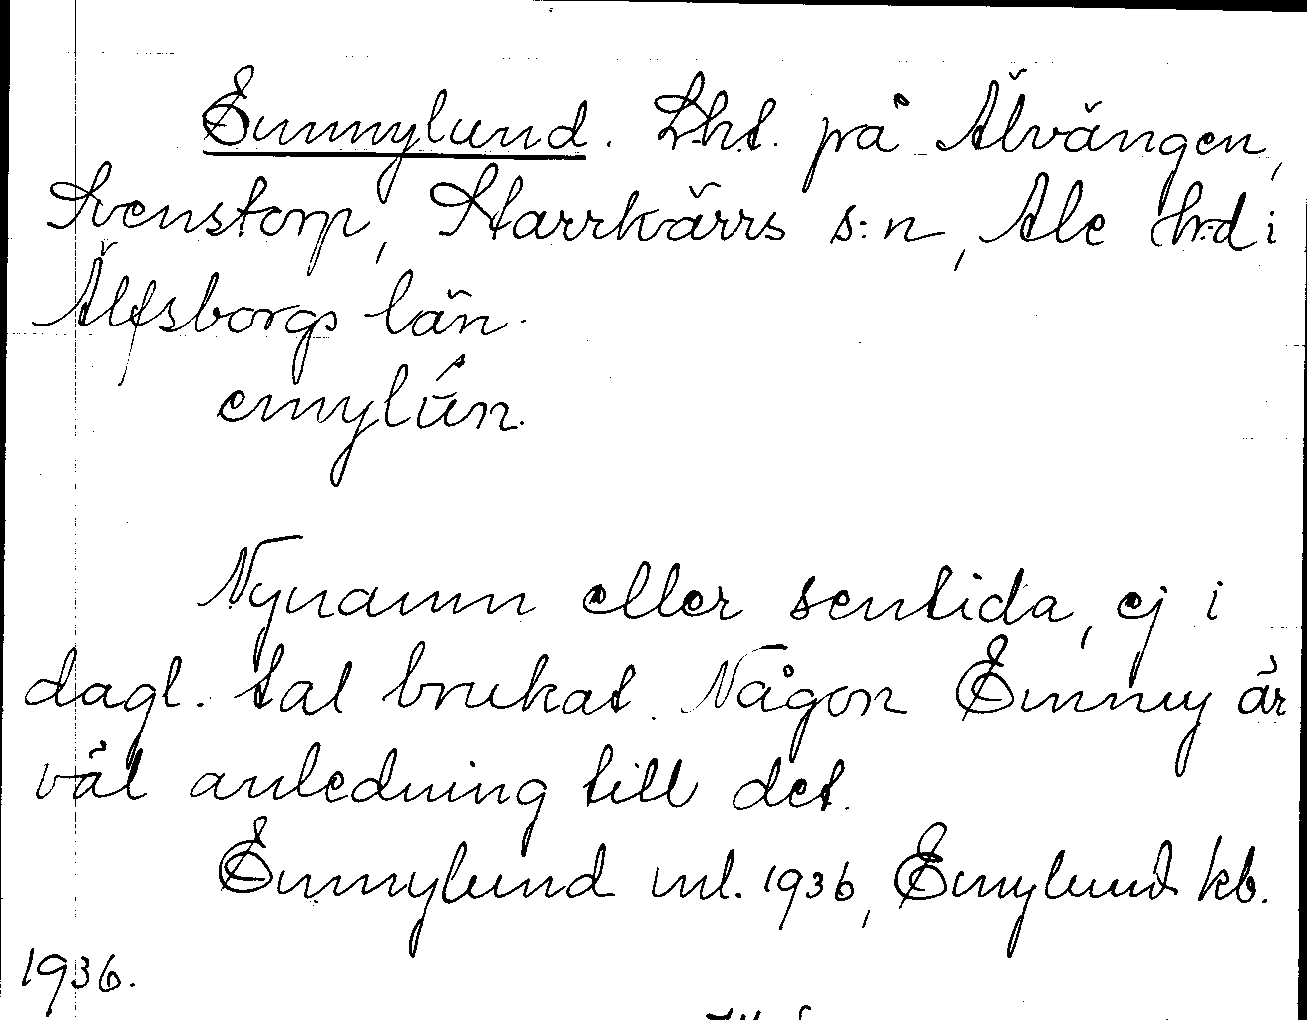 Emmylund. Lht. på Älvängen,
Svenstorp, Starrkärrs s:n, Ale h:d i
Älfsborgs län.
emylún.
Nynamn eller sentida, ej i
dagl. tal brukat. Någon Emmy är
väl anledning till det.
Emmylund ml. 1936, Emylund kb.
1936.